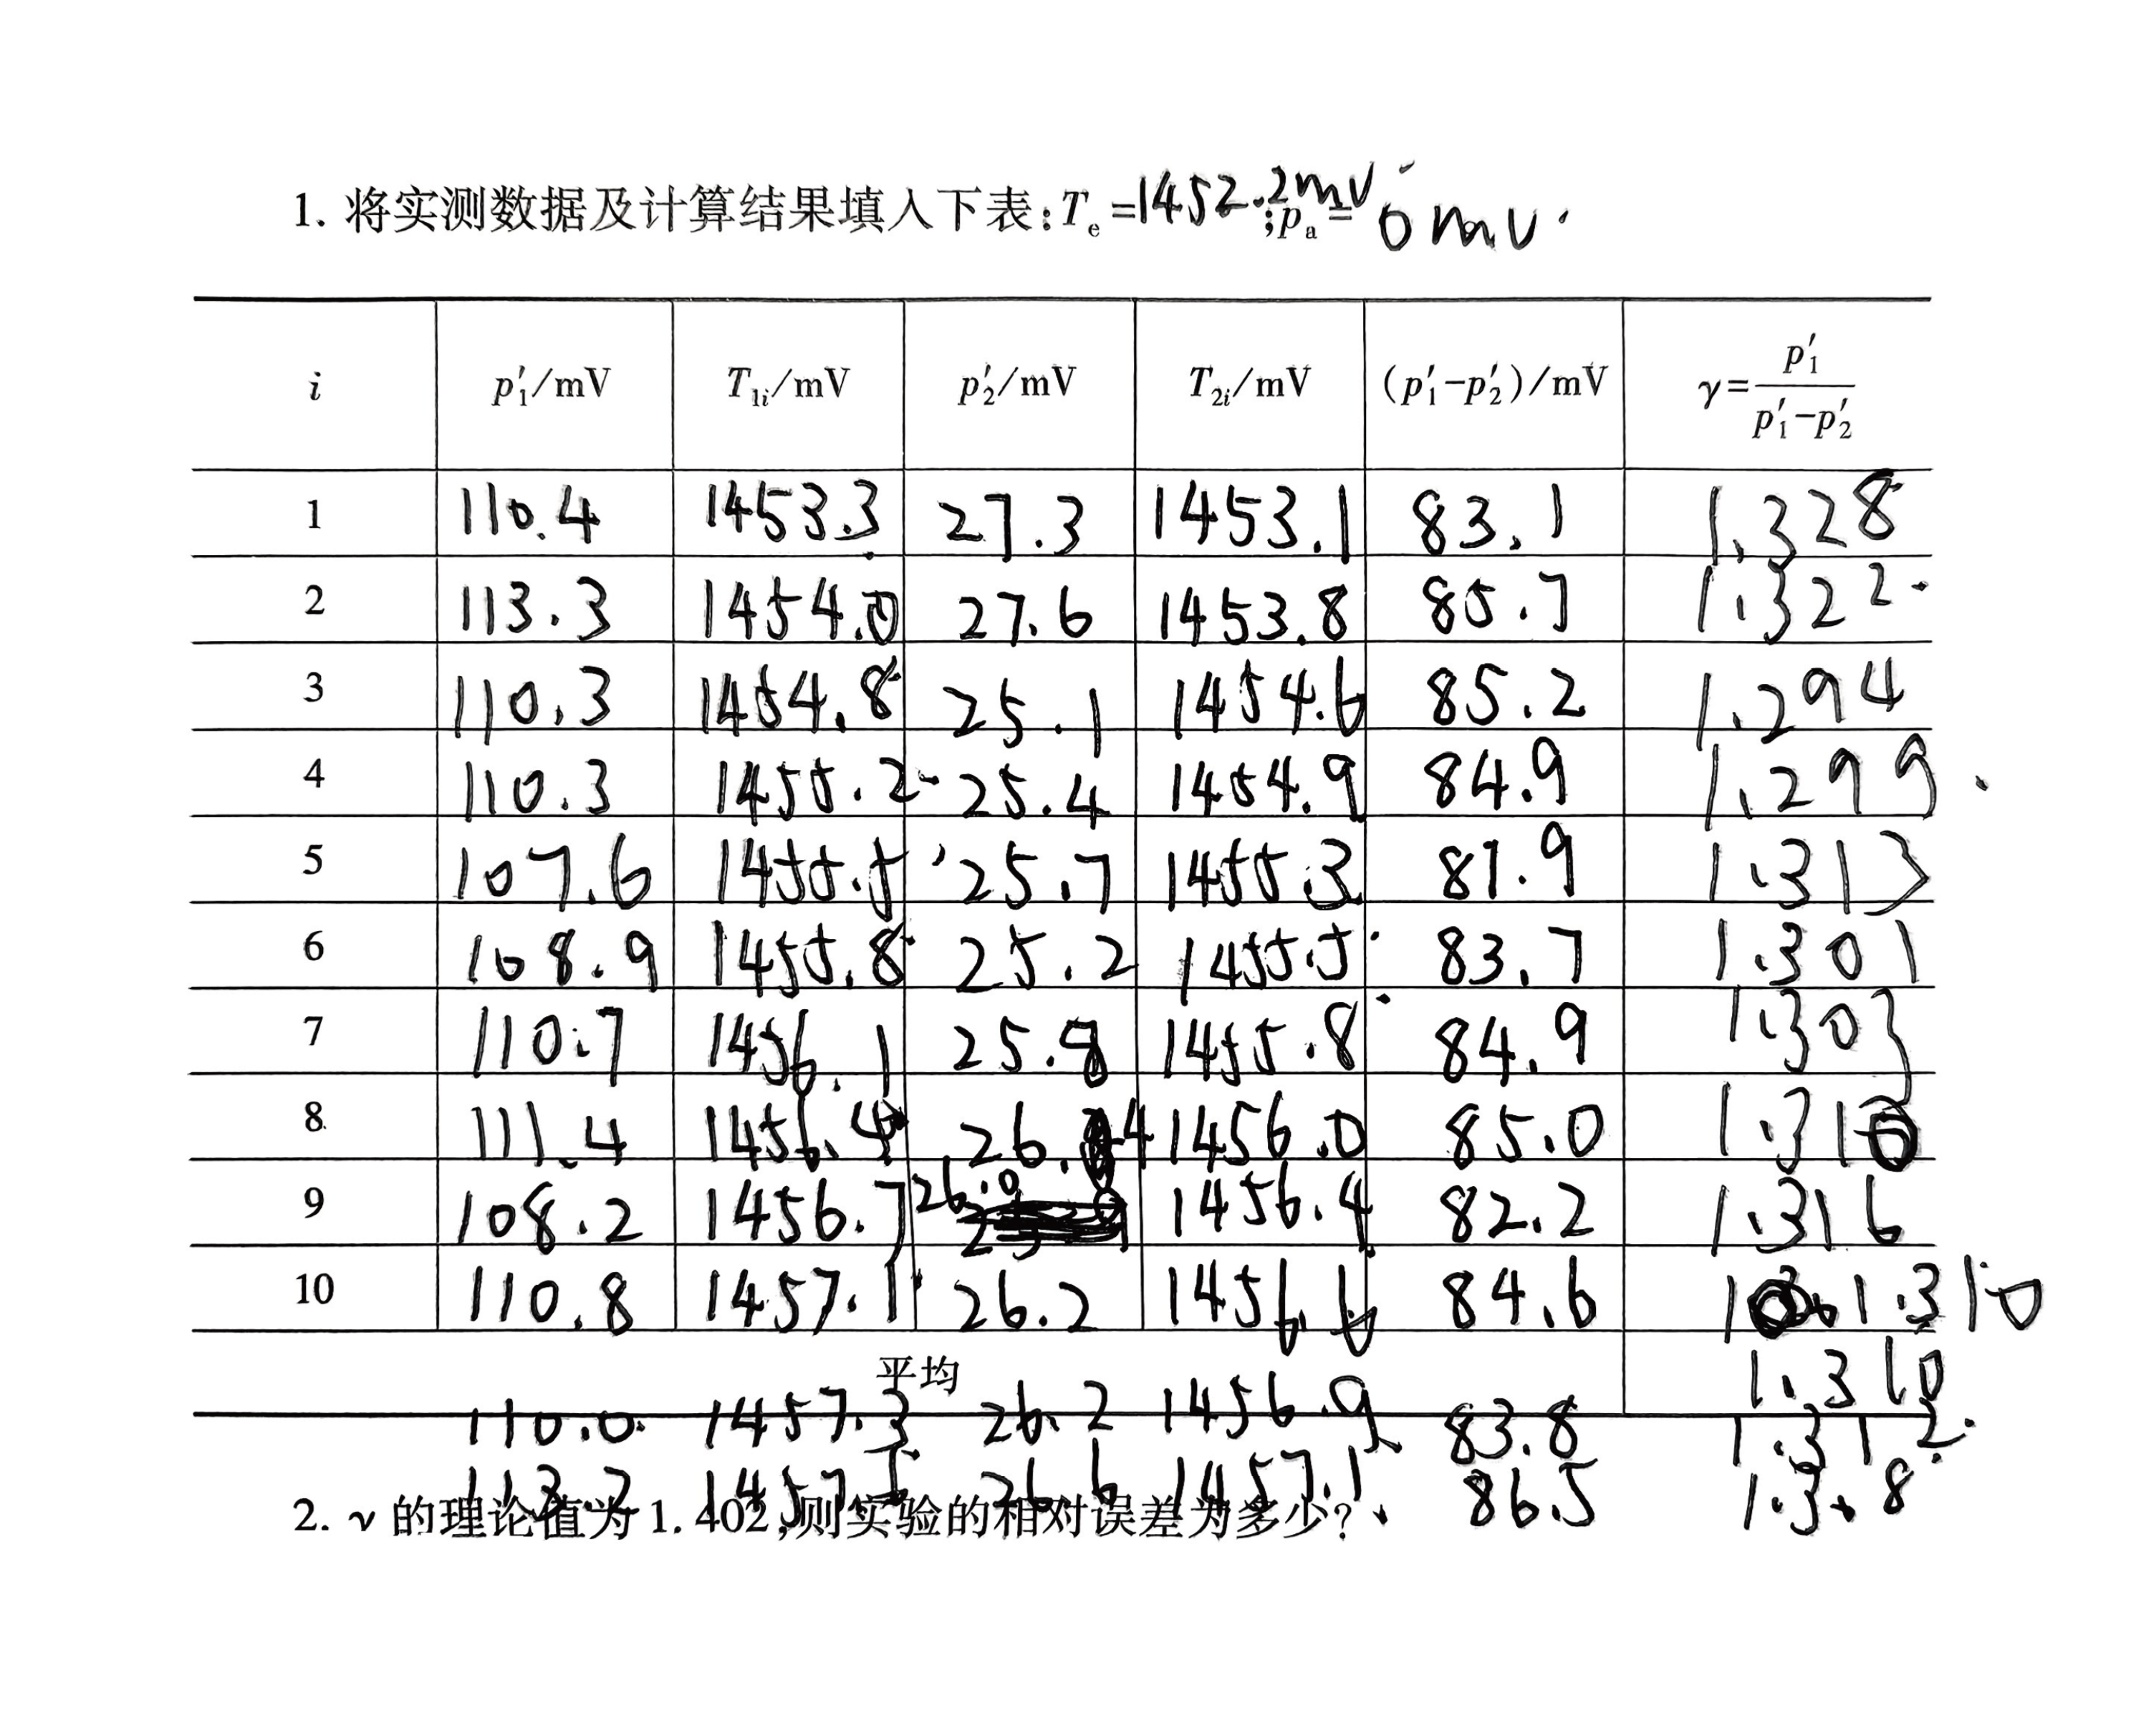 1. 将实测数据及计算结果填入下表:Te=1452.2mV;pa=0mV.
i p′1/mV T1i/mV p′2/mV T2i/mV (p′1-p′2)/mV γ=p′1/(p′1-p′2)
1 110.4 1453.3 27.3 1453.1 83.1 1.328
2 113.3 1454.0 27.6 1453.8 85.7 1.322
3 110.3 1454.8 25.1 1454.6 85.2 1.294
4 110.3 1455.2 25.4 1454.9 84.9 1.299
5 107.6 1455.5 25.7 1455.3 81.9 1.313
6 108.9 1455.8 25.2 1455.5 83.7 1.301
7 110.7 1456.1 25.8 1455.8 84.9 1.303
8 111.4 1456.4 26.4 1456.0 85.0 1.310
9 108.2 1456.7 26.0 1456.4 82.2 1.316
10 110.8 1457.1 26.2 1456.6 84.6 1.310
平均 1.310
110.0 1457.3 26.2 1456.9 83.8 1.312
1457.5 26.6 1457.1 86.5
2. γ的理论值为1.402,则实验的相对误差为多少?